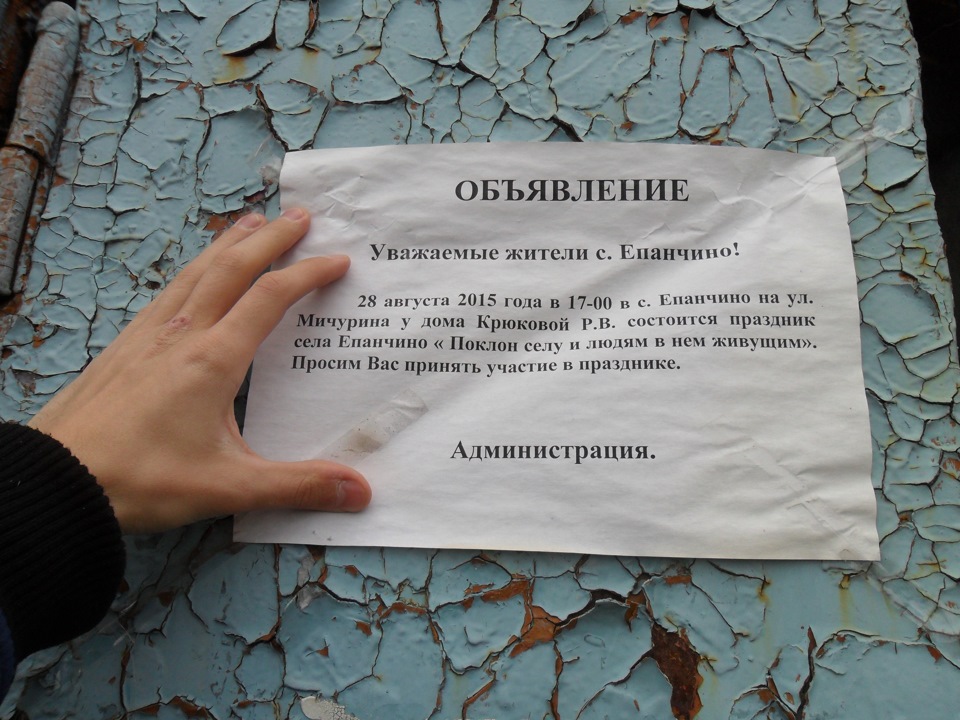 ОБЪЯВЛЕНИЕ
Уважаемые жители с. Епанчино!
28 августа 2015 года в 17-00 в с. Епанчино на ул.
Мичурина у дома Крюковой Р.В. состоится праздник
села Епанчино « Поклон селу и людям в нем живущим».
Просим Вас принять участие в празднике.
Администрация.